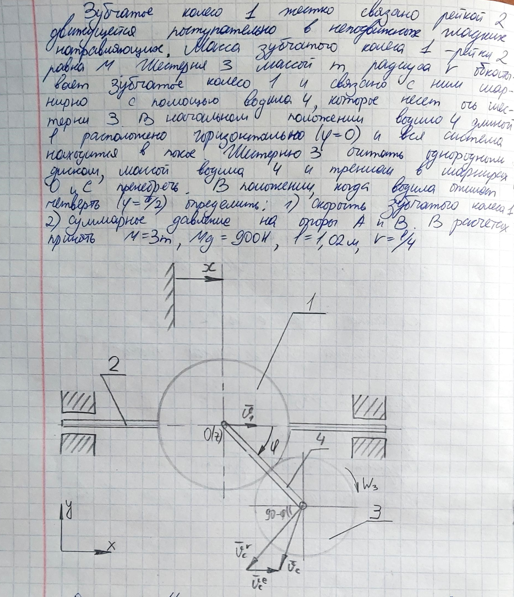 Зубчатое колесо 1 жестко связано рейкой 2
движется поступательно в неподвижных гладких
направляющих. Масса зубчатого колеса 1 - рейки 2
равна M Шестерня 3 массой m, радиуса r обкаты-
вает зубчатое колесо 1 и связано с ним шар-
нирно с помощью водила 4, которое несет ось шес-
терни 3 В начальном положении водило 4 длиной
l расположено горизонтально (φ=0) и вся система
находится в покое Шестерню 3 считать однородным
диском, массой водила 4 и трением в шарнирах
O и C пренебречь. В положении, когда водило опишет
четверть (φ=π/2) определить: 1) скорость зубчатого колеса 1
2) суммарное давление на опоры A и B. В расчетах
принять M=3m, Mg=900Н, l=1,02м, r=l/4
x
1
2
V̄₁
O(z)
φ
4
W₃
90-φ
3
y
x
V̄cʳ
V̄cᵉ
V̄c